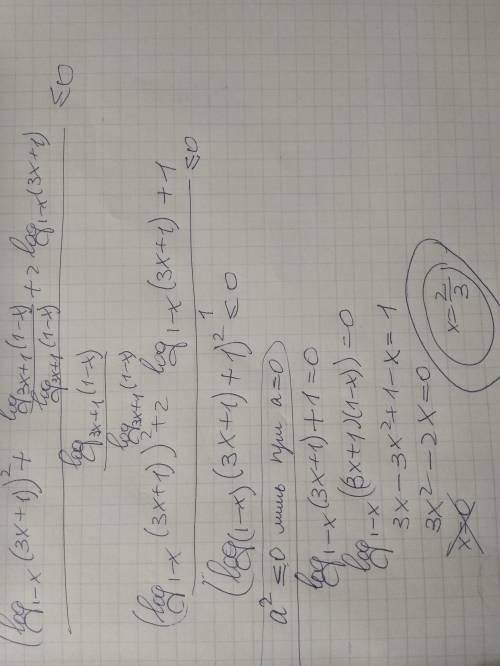 (log₁₋ₓ(3x+1))² + log₃ₓ₊₁(1-x) / log₃ₓ₊₁(1-x) + 2 log₁₋ₓ(3x+1)
log₃ₓ₊₁(1-x) / log₃ₓ₊₁(1-x) ≤ 0
(log₁₋ₓ(3x+1))² + 2 log₁₋ₓ(3x+1) + 1
1 ≤ 0
(log₍₁₋ₓ₎(3x+1)+1)² ≤ 0
a² ≤ 0 лишь при a=0
log₁₋ₓ(3x+1)+1=0
log₁₋ₓ((3x+1)(1-x))=0
3x-3x²+1-x=1
3x²-2x=0
x=0 x=2/3